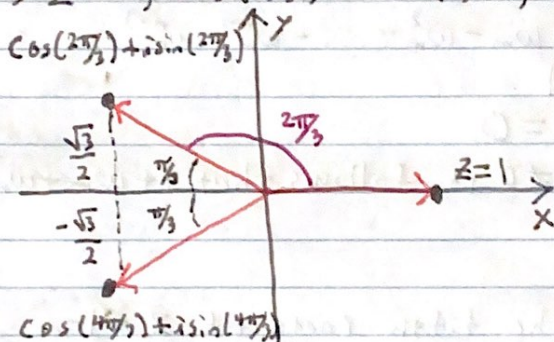 y
cos(2π/3)+isin(2π/3)
2π/3
√3/2
π/3
z=1
π/3
x
-√3/2
cos(4π/3)+isin(4π/3)